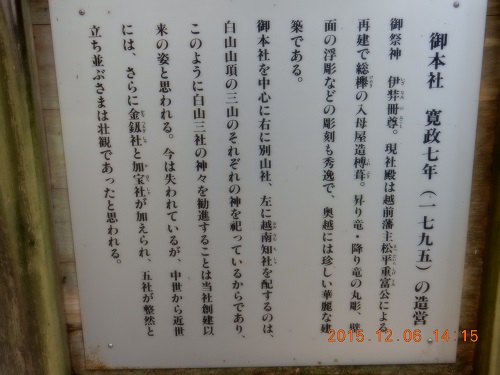 御本社　寛政七年（一七九五）の造営
御祭神　伊弉冊尊。現社殿は越前藩主松平重富公による
再建で総欅の入母屋造榑葺。昇り竜・降り竜の丸彫、壁
面の浮彫などの彫刻も秀逸で、奥越には珍しい華麗な建
築である。
御本社を中心に右に別山社、左に越南知社を配するのは、
白山山頂の三山のそれぞれの神を祀っているからであり、
このように白山三社の神々を勧進することは当社創建以
来の姿と思われる。今は失われているが、中世から近世
には、さらに金剱社と加宝社が加えられ、五社が整然と
立ち並ぶさまは壮観であったと思われる。
2015.12.06 14:15